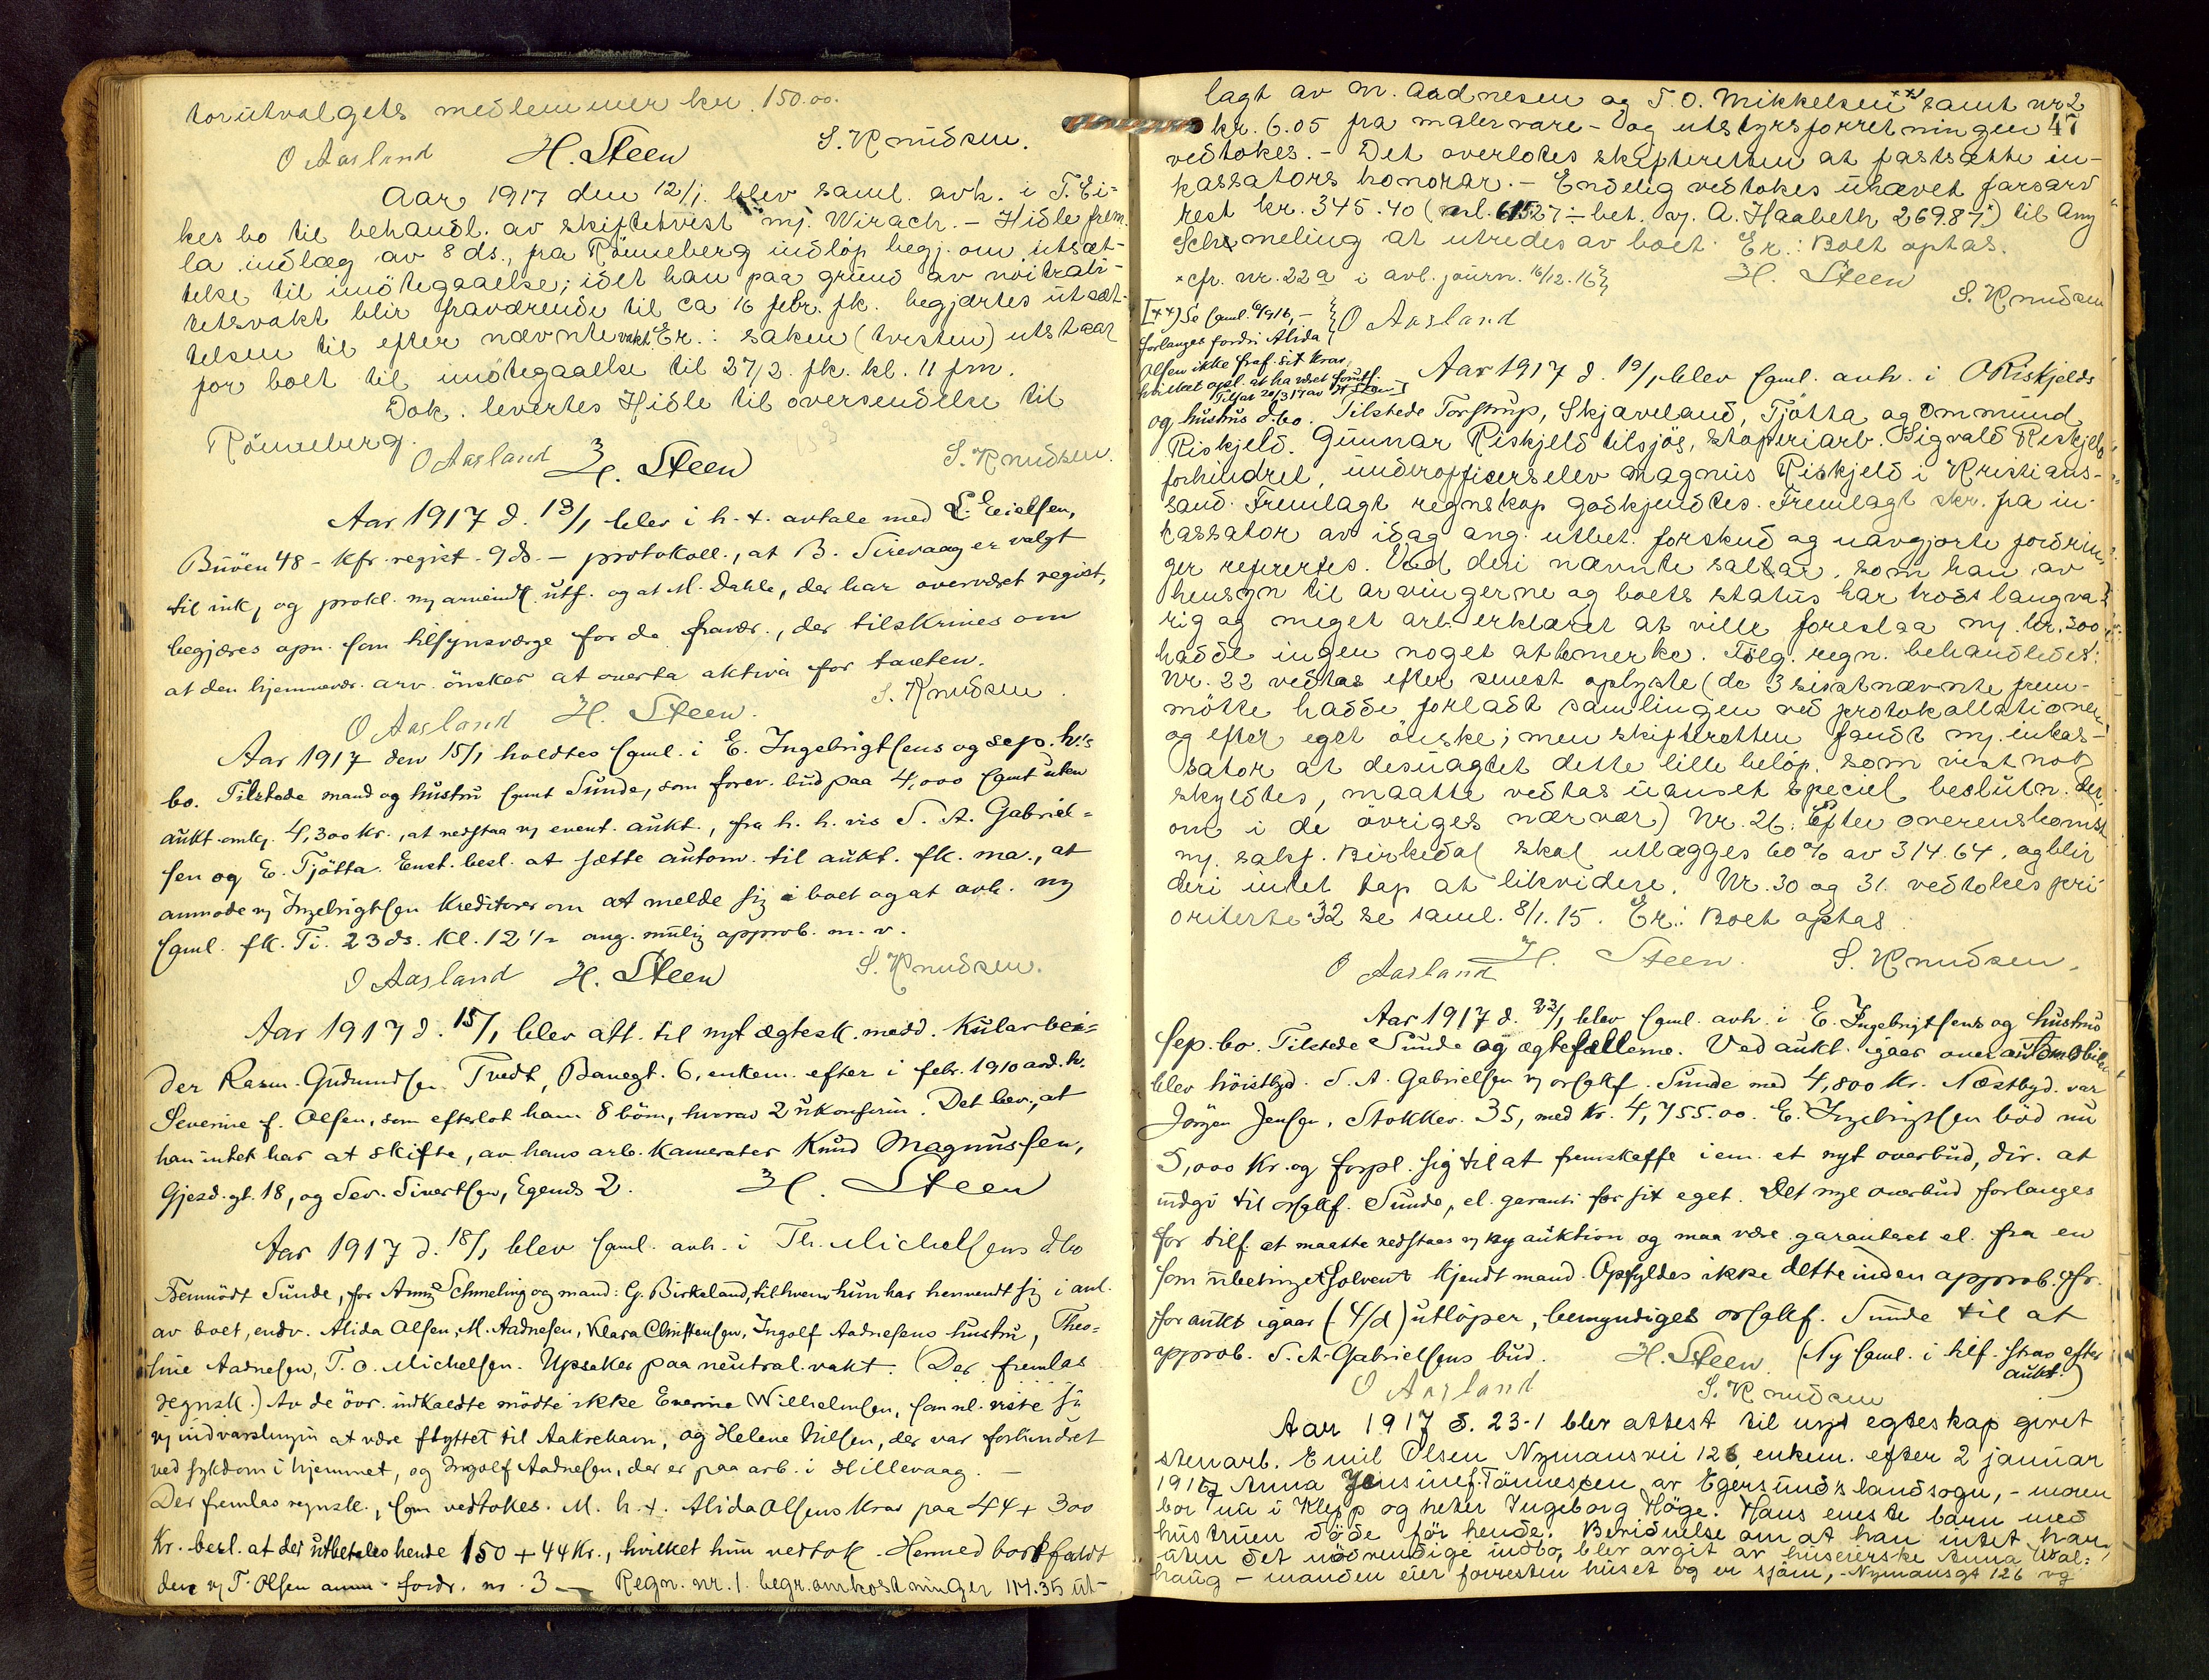 torutvalgets medlemmer kr. 150.00.
O Aasland H. Steen S. Knudsen.
Aar 1917 den 12/1. blev saml. avh. i T. Ei-
kes bo til behandl. av skiftetvist mj. Wirach. - Hidle frem-
la indlæg av 8 ds., fra Rönneberg indlöp begj. om utsæt-
telse til imötegaaelse; idet han paa grund av nöitrali-
tetsvakt blir fraværende til ca 16 febr. fk. begjærtes utsæt-
telsen til efter nævnte vakt. Er.: saken (tvisten) utstaar
for boet til imötegaaelse til 27/2. fk. kl. 11 fm.
Dok. levertes Hidle til oversendelse til
Rönneberg.
O Aasland H. Steen S. Knudsen.
Aar 1917 d. 13/1 blev i h. t. avtale med L. E. Eielsen,
Buöen 48 - kfr. regist. 9 ds. - protokoll., at B. Sirevaag er valgt
til ink, og prokl. mj arveindk. utf. og at M. Dahle, der har overværet regist,
begjæres opn. som tilsynsværge for de fravær., der tilskrives om
at den hjemmevær. arv. önsker at overta aktiva for taxten.
O Aasland H. Steen. S. Knudsen.
Aar 1917 den 15/1 holdtes saml. i E. Ingebrigtsens og sep. h.'s
bo. Tilstede mand og hustru samt Sunde, som forev. bud paa 4,000 samt uten
aukt. omk. 4,300 kr., at nedstaa vj event. aukt., fra h. h. vis S. A. Gabriel-
sen og E. Tjötta. Enst. besl. at sætte autom. til aukt. fk. ma., at
anmode vj Ingebrigtsen kreditorer om at melde sig i boet og at avh. ny
saml. fk. Ti. 23 ds. kl. 12 1/2 ang. mulig approb. m. v.
O Aasland H. Steen S. Knudsen.
Aar 1917 d. 15/1 blev att. til nyt ægtesk. medd. kularbei-
der Rasm. Gudmundsen Tvedt, Banegt. 6, enkem. efter i febr. 1910 avd. h.
Severine f. Olsen, som efterlot ham 8 börn, hvorav 2 ukonfirm. Det bev., at
han intet har at skifte, av hans arb. kamerater Knud Magnussen,
Gjesd. gt. 18, og Sev. Sivertsen, Egends 2. H. Steen
Aar 1917 d. 18/1 blev saml. avh. i Th. Michelsens d.bo
Fremmödt Sunde, for Anny Schmeling og mand: G. Birkeland, til hvem hun har henvendt sig i anl.
av boet, endv. Alida Olsen, M. Aadnesen, Klara Christensen, Ingolf Aadnesens hustru, Theo-
line Aadnesen, T. O. Michelsen. Upsaker paa neutral. vakt. (Der fremlas
regnsk.) Av de övr. indkaldte mödte ikke Everine Wilhelmsen, som nl. viste sig
vj indvarslingen at være flyttet til Aakrehavn, og Helene Nilsen, der var forhindret
ved sykdom i hjemmet, og Ingolf Aadnesen, der er paa arb. i Hillevaag. -
Der fremlas regnsk., som vedtokes. M. h. t. Alida Olsens krav paa 44 + 300
kr. besl. at der utbetales hende 150 + 44 kr., hvilket hun vedtok. Hermed bortfaldt
den vj T. Olsen anm. fordr. nr. 3 - Regn. nr. 1. begr. omkostninger 114.35 ut-
lagt av M. Aadnesen og T. O. Mikkelsen xx) samt nr 2
kr. 6.05 fra malervare- og utstyrsforretningen 47
vedtokes. - Det overlotes skifteretten at fastsætte in-
kassators honorar. - Endelig vedtokes uhævet farsarv
rest kr. 345.40 (nl. 615.27 ÷ bet. vj. A. Haabeth 269.87x) til Any
Schmeling at utredes av boet. Er.: Boet optas.
x cfr. nr. 22 a i avl. journ. 16/12. 16 H. Steen S. Knudsen
[xx) Se saml. 6/9 16, - O Aasland
forlanges fordi Alida
Olsen ikke fraf. sit krav
hvilket opl. at ha været foruts.
Tilføt 20/3 17 av H Steen]
Aar 1917 d. 19/1 blev saml. avh. i O Riskjelds
og hustrus d.bo. Tilstede Torstrup, Skjæveland, Tjötta og Ommund
Riskjeld. Gunnar Riskjeld tilsjös, stöperiarb. Sigvald Riskjeld
forhindret, underofficerselev Magnus Riskjeld i Kristians-
sand. Fremlagt regnskap godkjendtes. Fremlagt skr. fra in-
kassator av idag ang. utbet. forskud og uavgjorte fordrin-
ger refrertes. Ved deri nævnte salær, som han av
hensyn til arvingerne og boets status har trods langva-
rig og meget arb. erklæret at ville foreslaa mj. kr. 300
hadde ingen noget at bemerke. Fölg. regn. behandledes:
Nr. 22 vedtas efter senest oplyste (de 3 sisstnævnte frem-
mötte hadde forladt samlingen ved protokollationen
og efter eget önske; men skifteretten fandt mj. inkas-
sator at desuagtet dette lille belöp, som vistnok
skyldtes, maatte vedtas uanset speciel beslutn. der-
om i de övriges nærvær) Nr. 26: Efter overenskomst
mj. sakf. Birkedal skal utlægges 60% av 314.64, og blir
deri intet tap at likvidere. Nr. 30 og 31. vedtokes pri-
oriterte. 32 se saml. 8/1. 15. Er.: Boet optas.
O Aasland H. Steen. S. Knudsen.
Aar 1917 d. 23/1 blev saml. avh. i E. Ingebrigtsens og hustrus
sep. bo. Tilstede Sunde og ægtefællerne. Ved aukt. igaar over automobilen
blev höistbyd. S. A. Gabrielsen vj orsakf. Sunde med 4,800 kr. Næstbyd. var
Jörgen Jensen, Stokkev. 35, med kr. 4,755.00. E. Ingebrigtsen böd nu
5,000 kr. og forpl. sig til at fremskaffe i em. et nyt overbud, dir. at
indgi til orsakf. Sunde, el. garanti for sit eget. Det nye overbud forlanges
for tilf. at maatte nedstaas vj ny auktion og maa være garanteret el. fra en
som ubetinget solvent kjendt mand. Opfyldes ikke dette inden approb. fr.
for aukt igaar (4/d) utlöper, bemyndiges orsakf. Sunde til at
approb. S. A. Gabrielsens bud. H. Steen (Ny saml. i tilf. strax efter
aukt.)
O Aasland S. Knudsen
Aar 1917 d. 23-1 blev attest til nyt egteskap givet
stenarb. Emil Olsen Nymansvei 126, enkem. efter 2 januar
1917 Anna Jensine f. Tönnessen av Egersund's landsogn, - moren
bor nu i Klepp og heter Ingeborg Höge. Hans eneste barn med
hustruen döde för hende. Bevidnelse om at han intet har,
uten det nödvendige indbo, blev avgit av huseierske Anna Wal-
haug - manden eier forresten huset og er sjöm, - Nymansgt 126 og